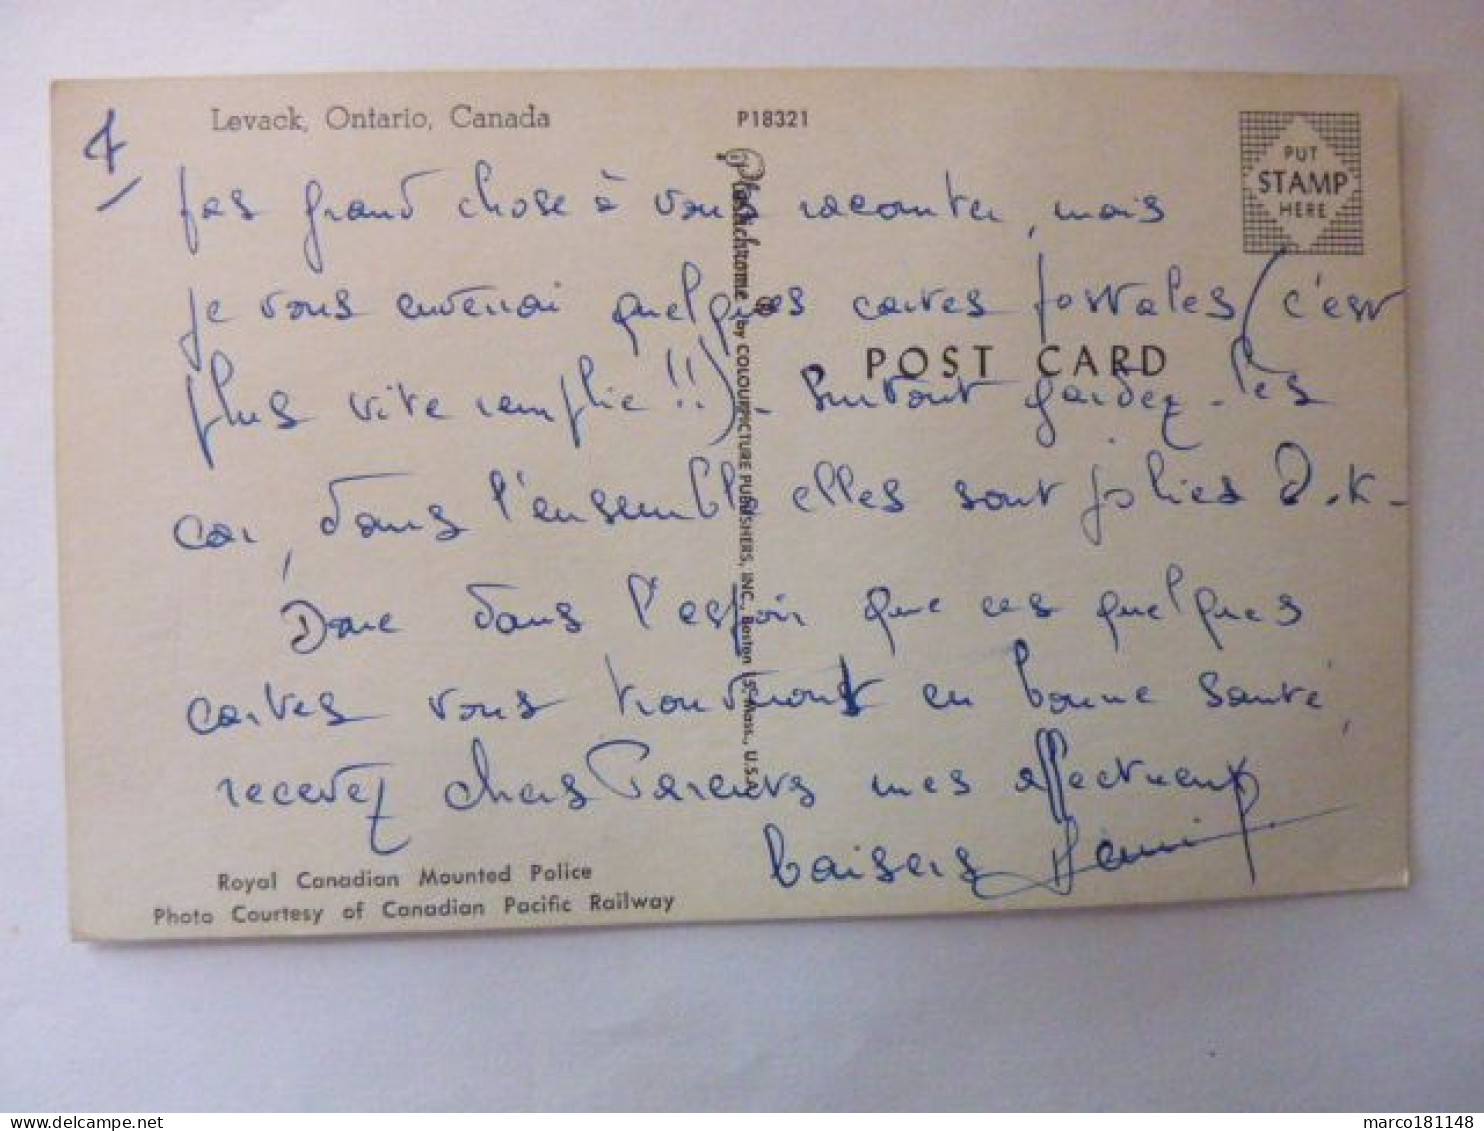 Levack, Ontario, Canada
P18321
PUT
STAMP
HERE
4
pas grand chose à vous raconter, mais
je vous enverrai quelques cartes postales (c'est
plus vite remplie !!) - Surtout gardez-les
car, dans l'ensemble elles sont jolies O.K-
Donc dans l'espoir que ces quelques
cartes vous trouveront en bonne santé,
recevez chers Parents mes affectueux
baisers Rémi
POST CARD
Plastichrome ® by COLOURPICTURE PUBLISHERS, INC., Boston 15, Mass., U.S.A.
Royal Canadian Mounted Police
Photo Courtesy of Canadian Pacific Railway
marco181148